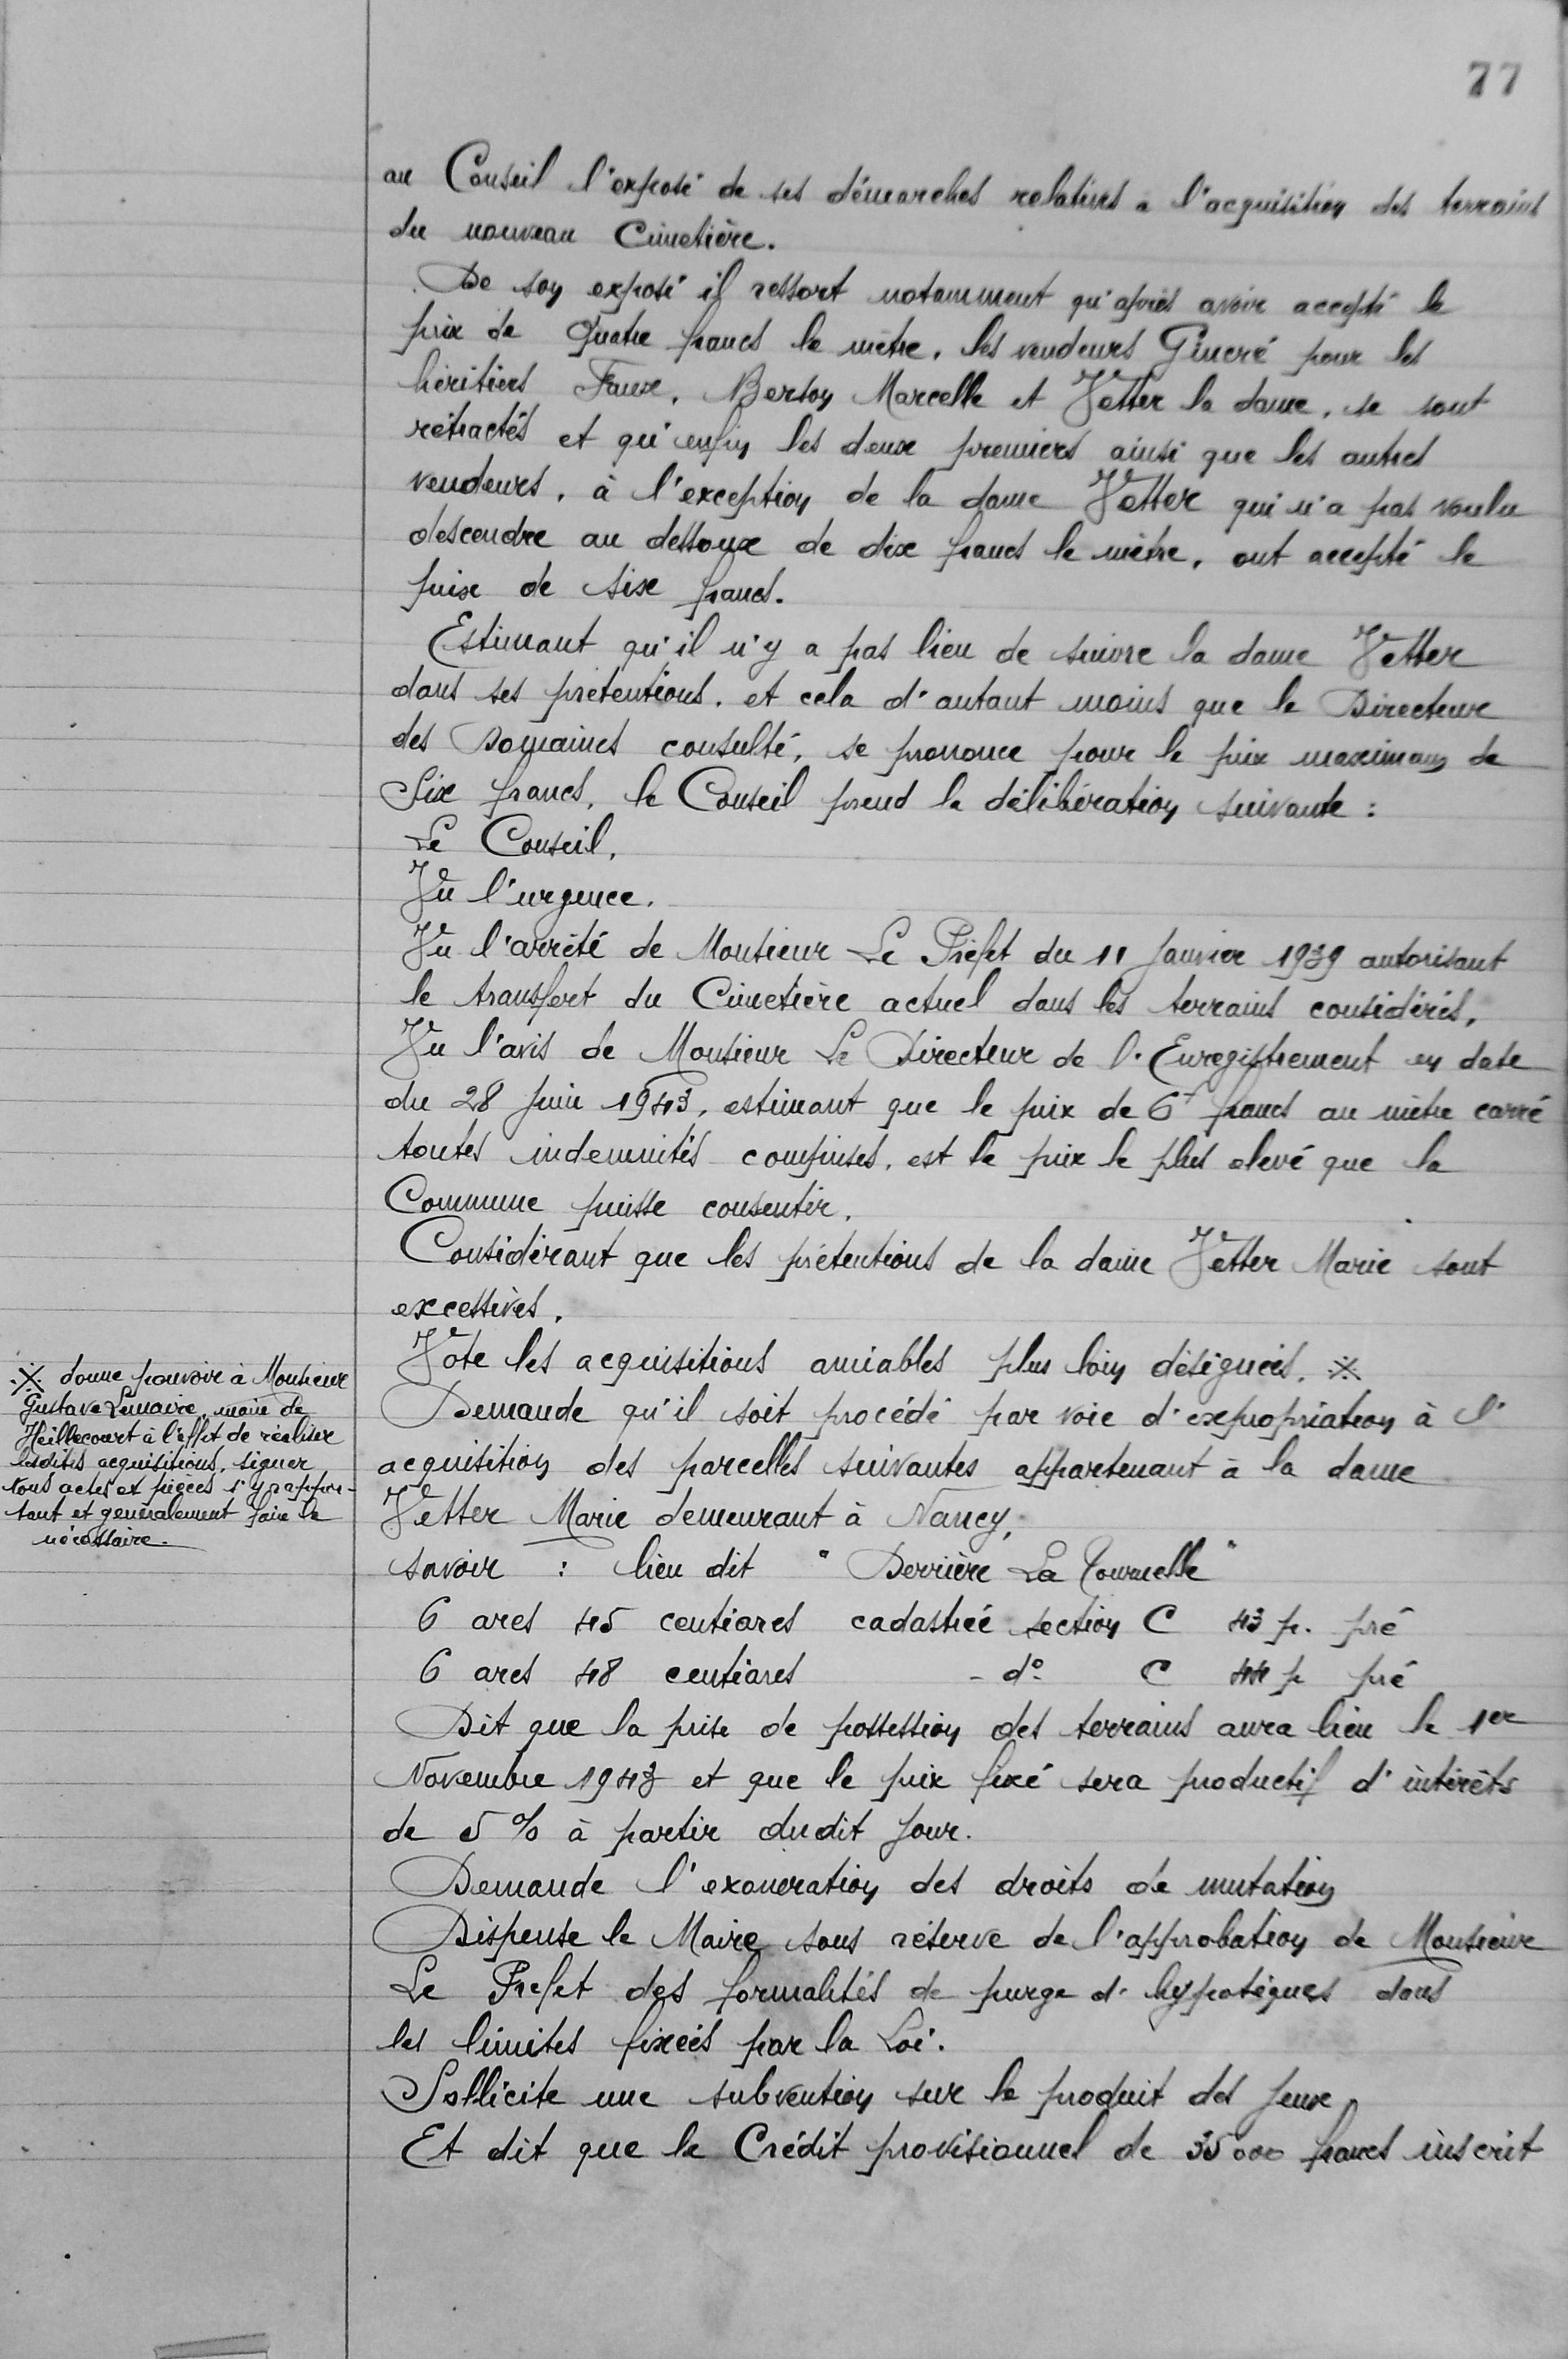 77
au Conseil l'exposé de ses démarches relatives a l'acquisition des terrains
du nouveau Cimetière.
De son exposé il ressort notamment qu'après avoir accepté le
prix de Quatre francs le mètre, les vendeurs Gineré pour les
héritiers Faux, Berson Marcelle et Vetter la dame, se sont
rétractés et qu'enfin les deux premiers ainsi que les autres
vendeurs, à l'exception de la dame Vetter qui n'a pas voulu
descendre au dessoux de dix francs le mètre, ont accepté le
prix de six francs.
Estimant qu'il n'y a pas lieu de suivre la dame Vetter
dans ses prétentions, et cela d'autant moins que le Directeur
des Domaines consulté, se prononce pour le prix maximum de
Six francs, le Conseil prend la délibération suivante :
Le Conseil,
Vu l'urgence,
Vu l'arrêté de Monsieur Le Préfet du 11 Janvier 1939 autorisant
le transfert du Cimetière actuel dans les terrains considérés,
Vu l'avis de Monsieur Le Directeur de l'Enregistrement en date
du 28 Juin 1943, estimant que le prix de 6f francs au mètre carré
toutes indemnités comprises, est le prix le plus elevé que la
Commune puisse consentir,
Considérant que les prétentions de la dame Vetter Marie sont
excessives,
Vote les acquisitions amiables plus loin désignées, ※
※ donne pouvoir à Monsieur
Gustave Lemaire, maire de
Heillecourt à l'effet de réaliser
lesdites acquisitions, signer
tous actes et pièces s'y rappor-
tant et généralement faire le
nécessaire.
Demande qu'il soit procédé par voie d'expropriation à l'
acquisition des parcelles suivantes appartenant à la dame
Vetter Marie demeurant à Nancy,
savoir : lieu dit "Derrière La Tournelle"
6 ares 45 centiares cadastrée section C 43 p. pré
6 ares 48 centiares - do - C 44 p pré
Dit que la prise de possession des terrains aura lieu le 1er
Novembre 1943 et que le prix fixé sera productif d'intérêts
de 5 % à partir dudit Jour.
Demande l'exoneration des droits de mutation
Dispense le Maire sous réserve de l'approbation de Monsieur
Le Prefet des formalités de purge d'hypotèques dans
les limites fixées par la Loi.
Sollicite une subvention sur le produit des Jeux
Et dit que le Crédit provisionnel de 35000 francs inscrit